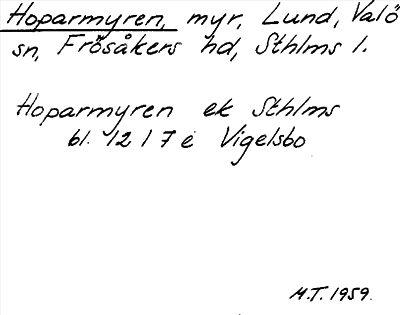 Hoparmyren, myr, Lund, Valö
sn, Frösåkers hd, Sthlms l.
Hoparmyren ek Sthlms
bl. 12 I 7 e Vigelsbo
M.T. 1959.